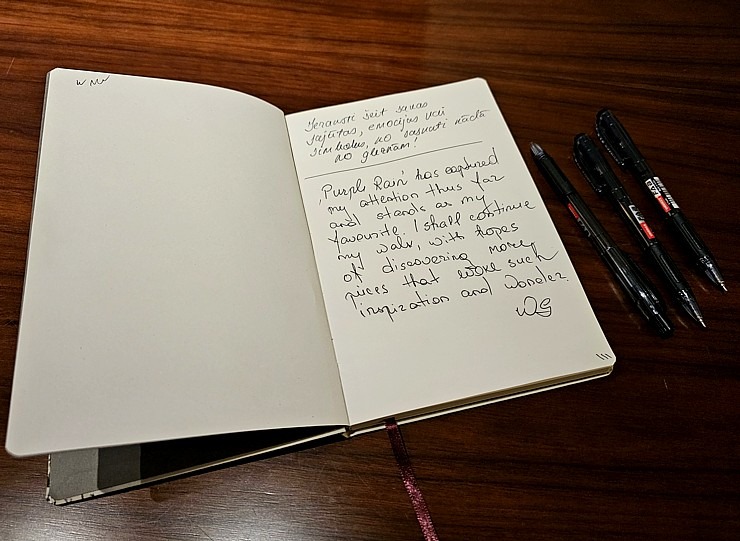 Ieraksti šeit savas
sajūtas, emocijas vai
simbolus, ko kādā
no gleznām!
'Purple Rain' has captured
my attention thus far
and stands as my
favourite. I shall continue
my walk, with hopes
of discovering more
pieces that evoke such
inspiration and wonder.
WS